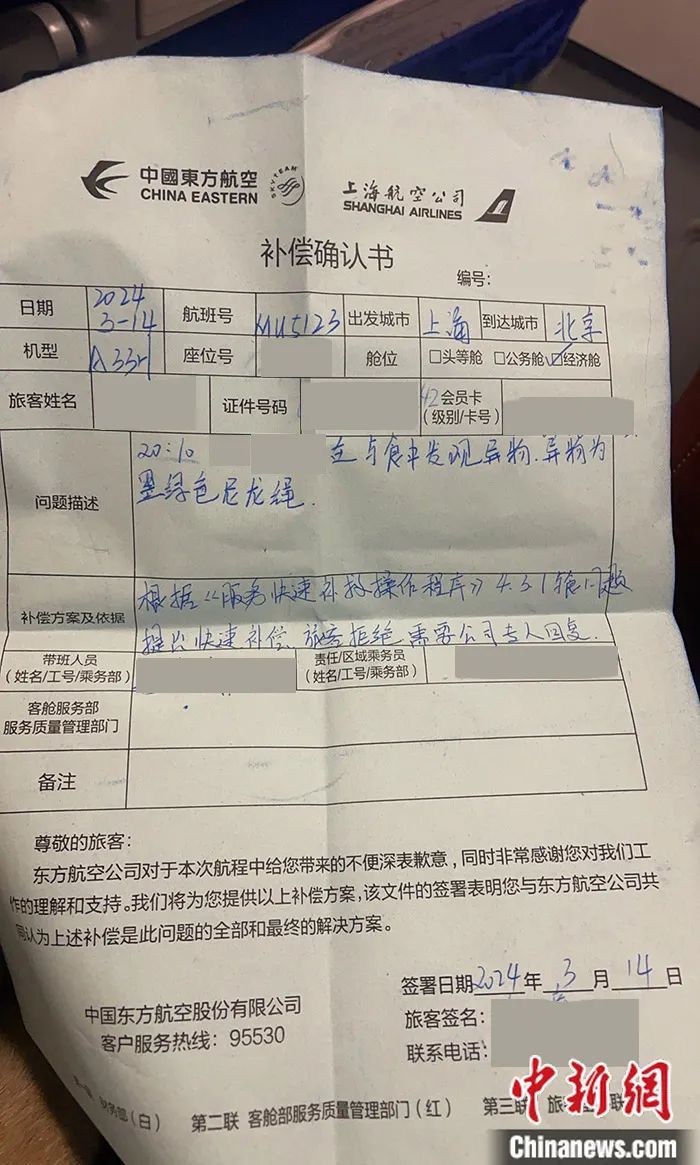 中國東方航空
CHINA EASTERN
SKYTEAM
上海航空公司
SHANGHAI AIRLINES
补偿确认书
编号:
日期 2024 3-14 航班号 MU5123 出发城市 上海 到达城市 北京
机型 A33 座位号 舱位 □头等舱 □公务舱 ☑经济舱
旅客姓名 证件号码 会员卡
(级别/卡号)
问题描述 20:10 在 与食中发现异物.异物为
墨绿色尼龙绳.
补偿方案及依据 根据《服务快速补救操作程序》4.3.1 问题
提出快速补偿、旅客拒绝.需要公司专人回复.
带班人员
(姓名/工号/乘务部)
责任/区域乘务员
(姓名/工号/乘务部)
客舱服务部
服务质量管理部门
备注
尊敬的旅客：
东方航空公司对于本次航程中给您带来的不便深表歉意，同时非常感谢您对我们工
作的理解和支持。我们将为您提供以上补偿方案,该文件的签署表明您与东方航空公司共
同认为上述补偿是此问题的全部和最终的解决方案。
签署日期2024年 3 月 14 日
中国东方航空股份有限公司
旅客签名：
客户服务热线：95530
联系电话：
财务部（白） 第二联 客舱部服务质量管理部门（红） 第三联 旅
中新网
Chinanews.com